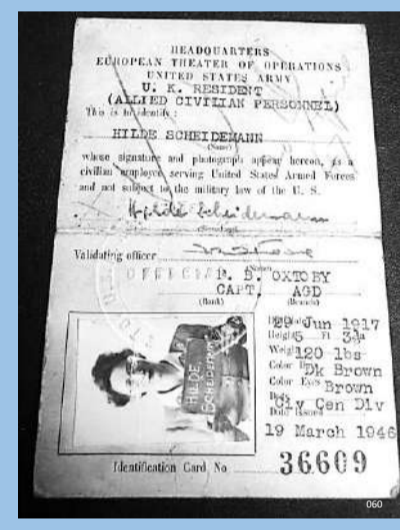 HEADQUARTERS
EUROPEAN THEATER OF OPERATIONS
UNITED STATES ARMY
U. K. RESIDENT
(ALLIED CIVILIAN PERSONNEL)
This is to identify :
HILDE SCHEIDEMANN
(Name)
whose signature and photograph appear hereon, is a
civilian employee serving United States Armed Forces
and not subject to the military law of the U. S.
Hilde Scheidemann
Validating officer
OFFICIAL B. OXTOBY
CAPT. AGD
(Rank) (Branch)
HILDE
SCHEIDEMANN
29 Jun 1917
Height 5 Ft 3
Weight 120 lbs
Color Dk Brown
Color Eyes Brown
Civ Cen Div
Date Issued
19 March 1946
Identification Card No 36609
060